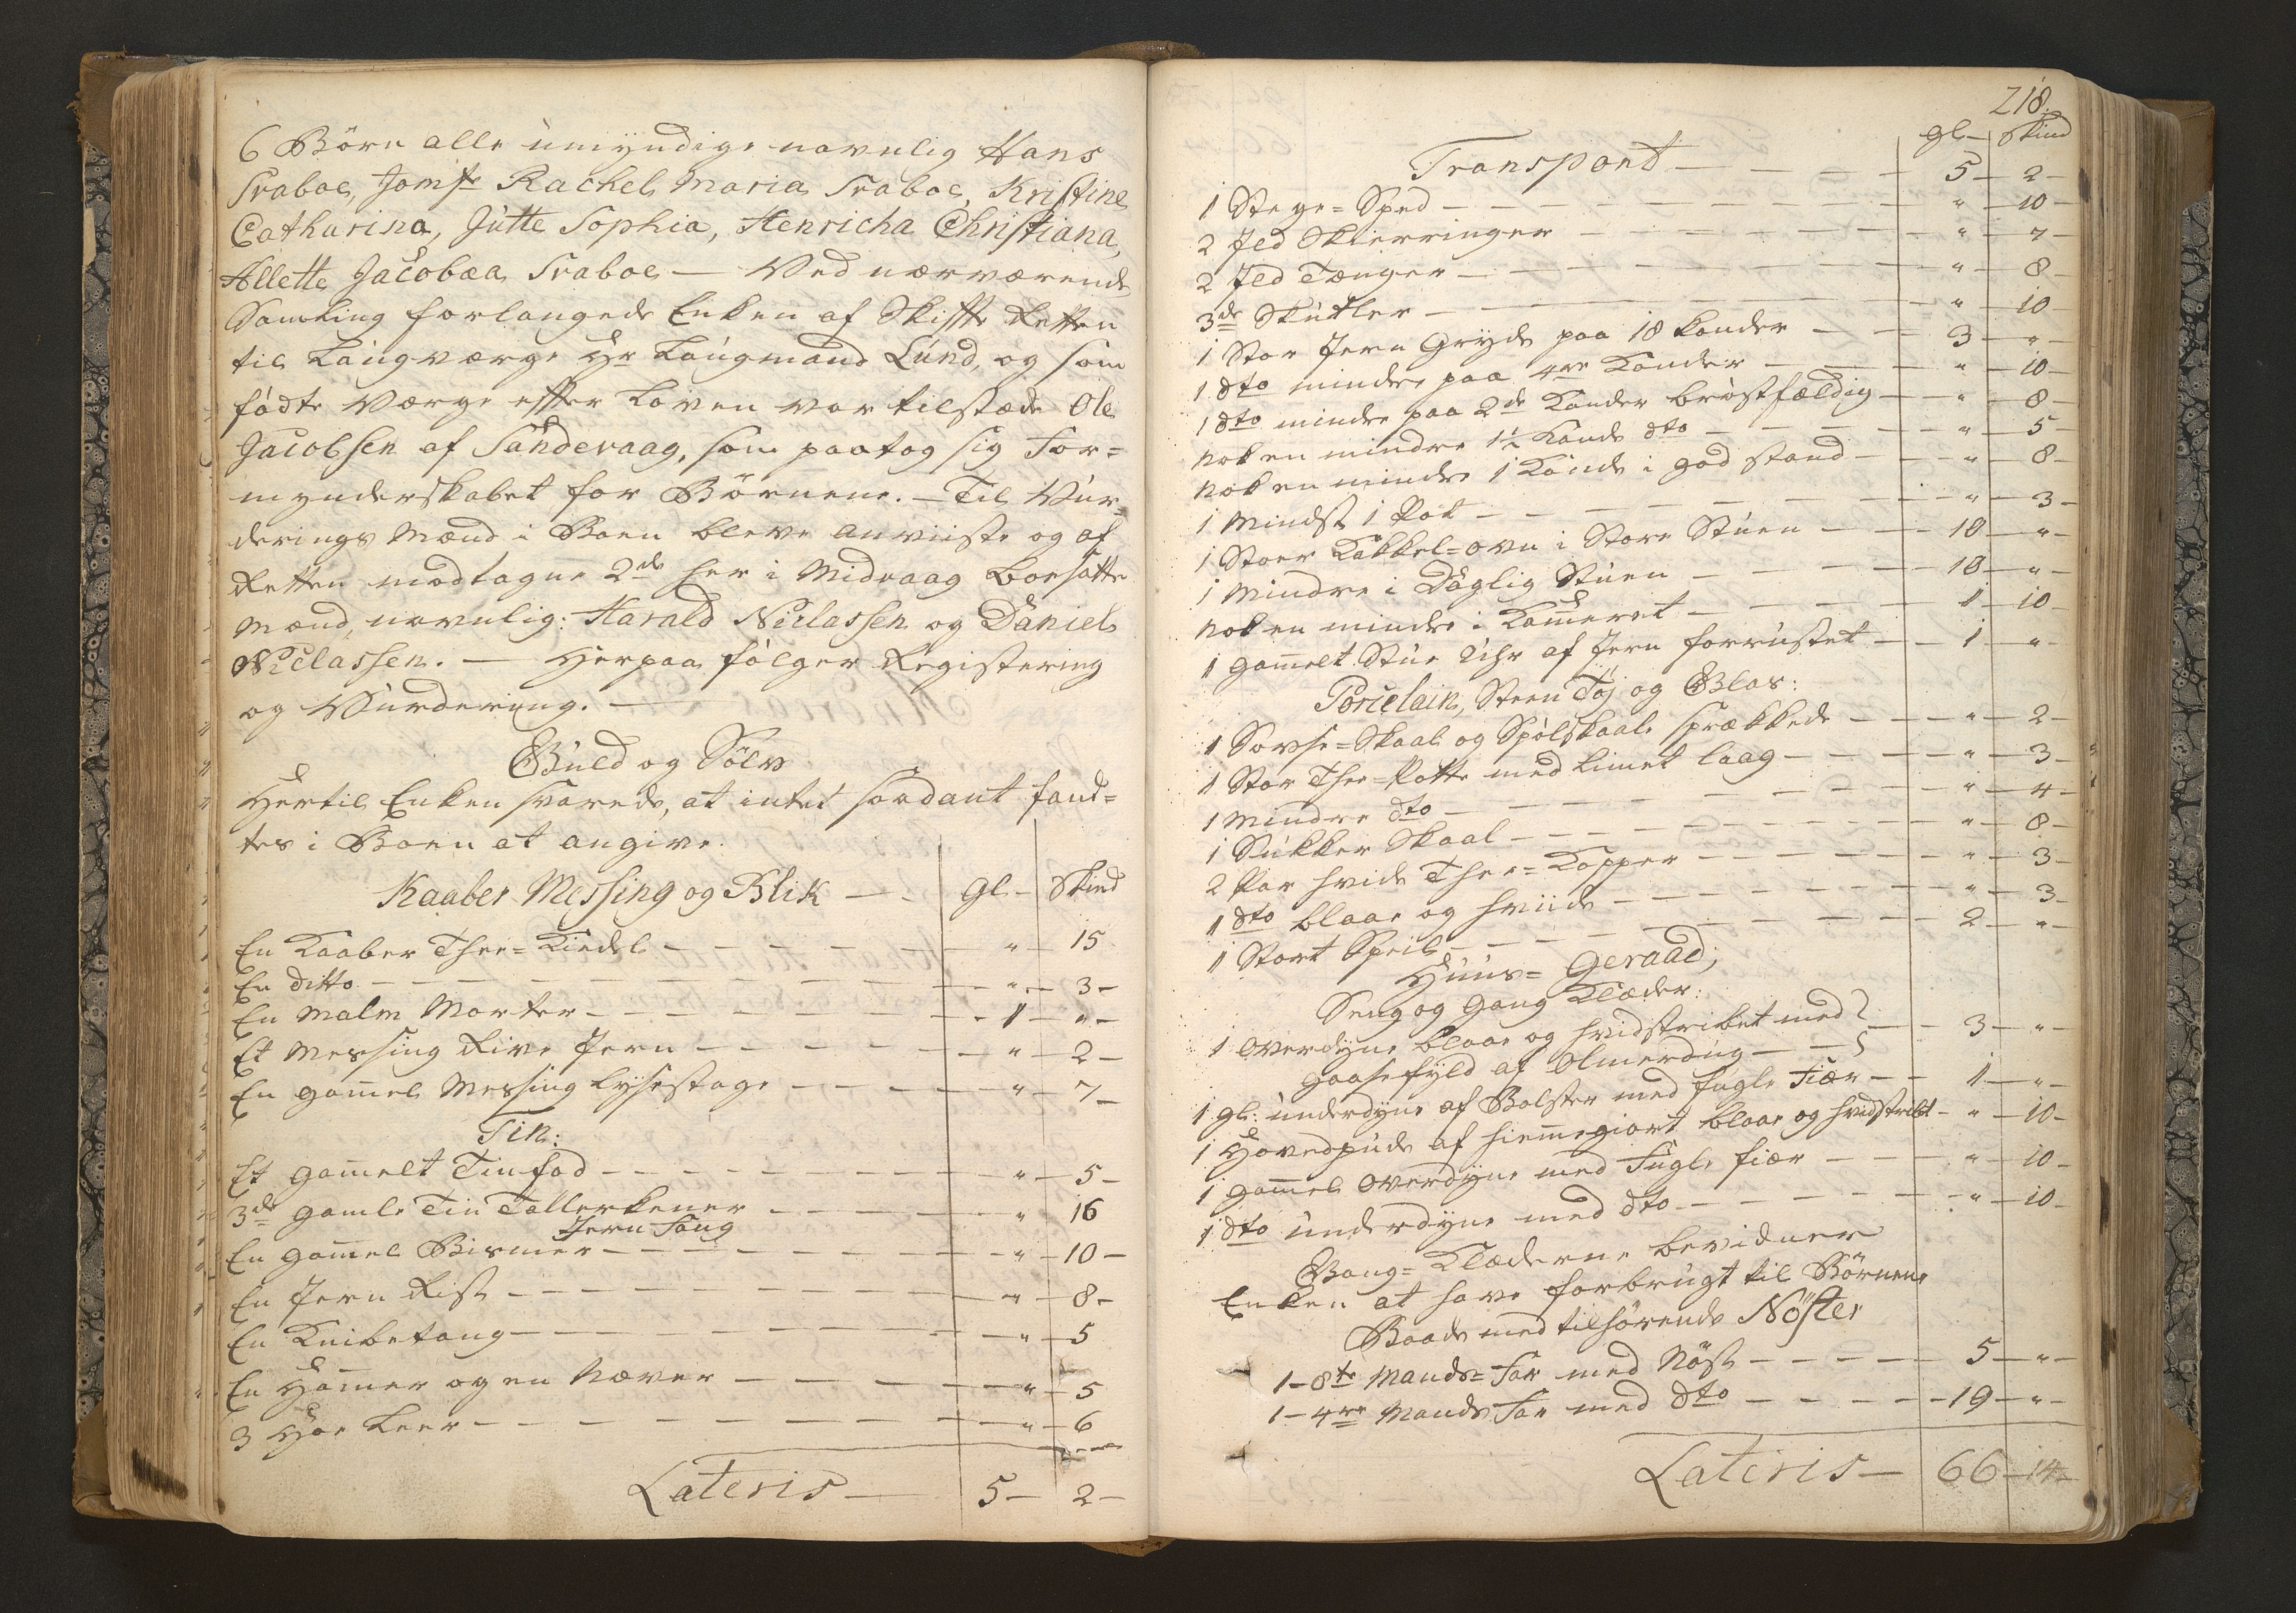 6 Börn alle umyndige navnlig Hans
Svaboe, Jomfr Rachel Maria Svaboe, Kristine
Catharina, Jutte Sophia, Henricha Christiana,
Allette Jacobæa Svaboe — Ved nærværende
Samling forlangede Enken af Skifte Retten
til Laugværge Hr Laugmand Lund, og som
födte Værge efter Loven var tilstæde Ole
Jacobsen af Sandevaag, som paatog sig For=
mynderskabet for Börnene. — Til Vur=
derings Mænd i Boen bleve anviiste og af
Retten modtagne 2de her i Midvaag boesatte
Mænd, navnlig: Harald Niclassen og Daniel
Niclassen. — Herpaa fölger Registering
og Vurdering. —
Guld og Sölv
Hertil Enken svarede, at intet saadant fand=
tes i Boen at angive.
Kaaber Messing og Blik — Gl — Skind
En Kaaber Thee=Kiedel — " — 15
En ditto — " — 3 —
En Malm Morter — 1 — " —
Et Messing Rive Jern — " — 2 —
En gammel Messing Lysestage — " — 7 —
Tin:
Et gammelt Tinfad — " — 5 —
3de gamle Tin Tallerkener — " — 16
Jern Fang
En gammel Bismer — " — 10 —
En Jern Rist — " — 8 —
En Knibetang — " — 5
En Hammer og en Næver — " — 5
3 Høe Leer — " — 6
Lateris — 5 — 2 —
218.
gl — Skind
Transport — 5 — 2 —
1 Stege=Spid — " — 10 —
2 Ild Skierringer — " — 7 —
2 Ild Tænger — " — 8 —
3de Skutler — " — 10
1 Stor Jern Gryde paa 18 Kander — 3 — " —
1 dto mindre paa 4re Kander — " — 10 —
1 dto mindre paa 2de Kander bröstfældig — " — 8 —
nok en mindre 1½ Kande dto — " — 5 —
nok en mindre 1 Kande i god stand — " — 8 —
1 Mindst 1 Pot — " — 3 —
1 Stoer Kakkel=ovn i Store Stuen — 10 — " —
1 Mindre i Daglig Stuen — 10 — " —
nok en mindre i Kammeret — 1 — 10 —
1 gammelt Stue Uhr af Jern forrustet — 1 — " —
Porcelain, Steen Töj og Glas:
1 Sovse=Skaal og Spölskaal sprækkede — " — 2 —
1 Stor Thee=Potte med limet laag — " — 3 —
1 Mindre dto — " — 4 —
1 Sukker Skaal — " — 8 —
2 Par hvide Thee=Kopper — " — 3 —
1 dto blaae og hviide — " — 3 —
1 Stort Speil — 2 — " —
Huus=Geraad;
Seng og Gang Klæder:
1 Overdyne blaae og hvidstribet med
Gaasefyld af Olmerdug — 3 — " —
1 gl: underdyne af Bolster med fugle Fiær — 1 — " —
1 Hovedpude af hiemmegiort blaae og hvidstribt — " — 10 —
1 gammel Overdyne med Fugle fiær — " — 10 —
1 dto underdyne med dto — " — 10 —
Gang=Klæderne bevidner
Enken at have forbrugt til Börnene
Baade med tilhörende Nöster
1 — 8te Mands=Far med Nöst — 5 — " —
1 — 4re Mands Far med dto — 19 — " —
Lateris — 66 — 14 —